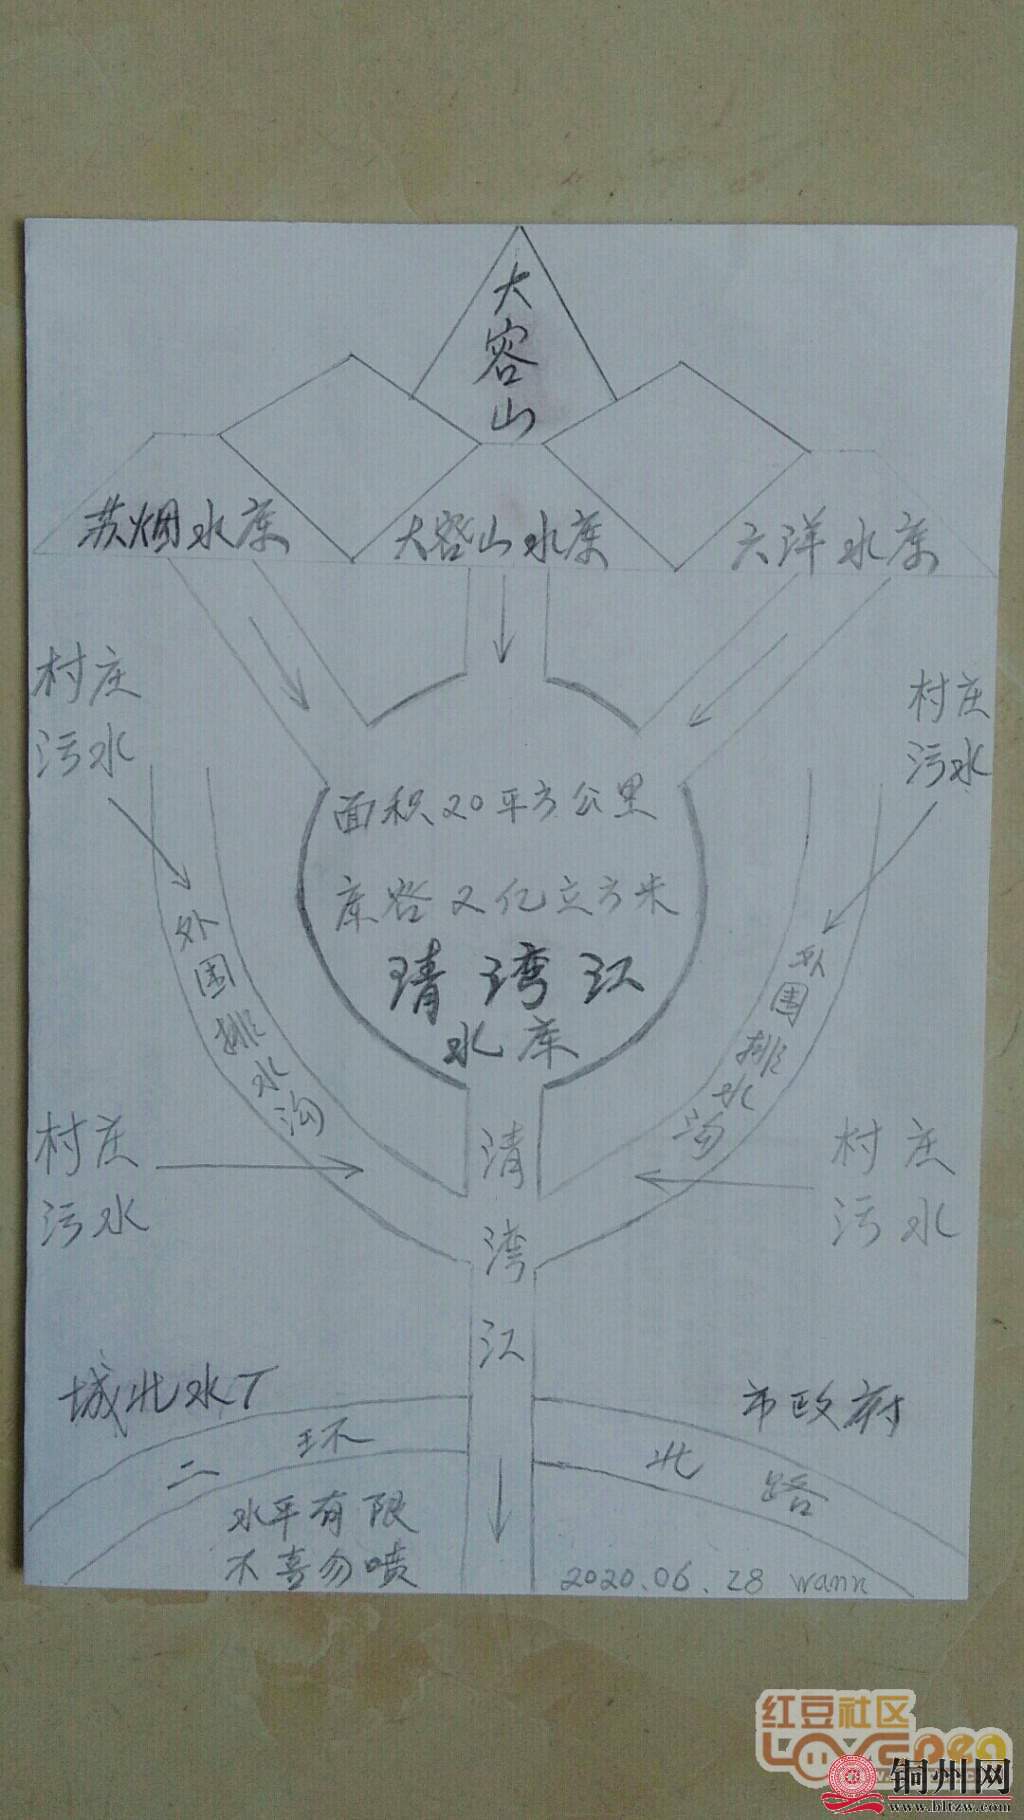 大容山
苏烟水库
大容山水库
六洋水库
村庄
污水
村庄
污水
面积20平方公里
库容2亿立方米
清湾江
水库
外围排水沟
外围排水沟
村庄
污水
村庄
污水
清湾江
城北水厂
市政府
二环北路
水平有限
不喜勿喷
2020.06.28 wann
红豆社区
铜州网
www.bltzw.com